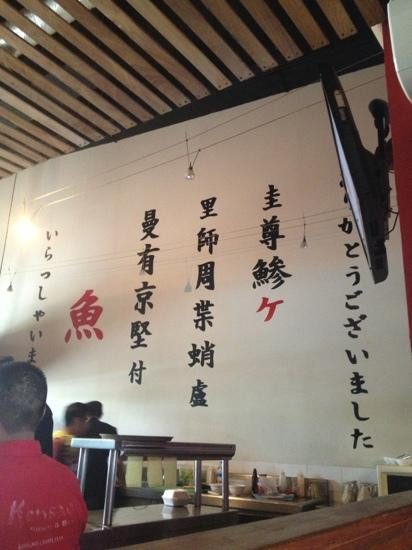 がとうございました
圭尊鯵ケ
里師周葉蛸盧
曼有京堅付
魚
いらっしゃいま